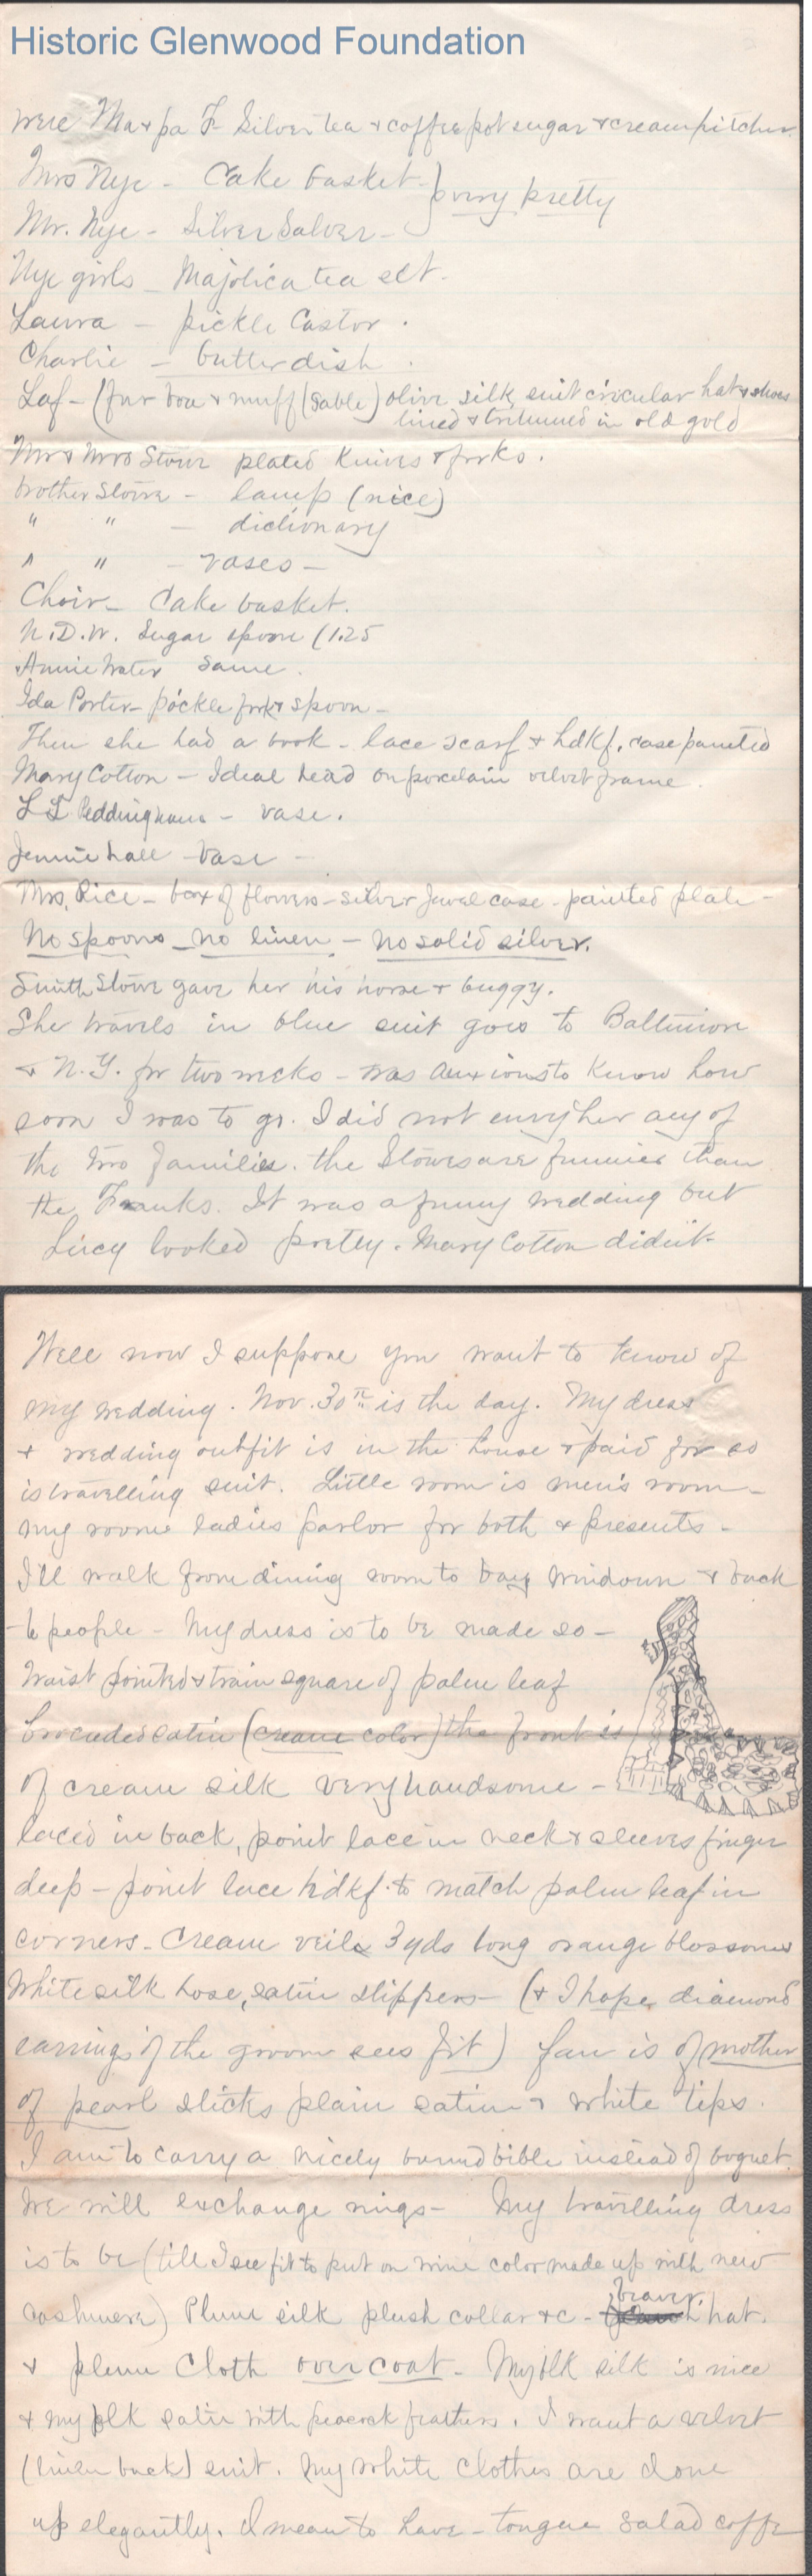 Historic Glenwood Foundation
were Ma & pa F- Silver tea & coffee pot sugar & cream pitcher
Mrs Nye - Cake basket } very pretty
Mr. Nye - Silver Salver -
Nye girls - Majolica tea set.
Laura - pickle Castor.
Charlie - butter dish.
Laf - (fur boa & muff (sable) olive silk suit circular hat & shoes
lined & trimmed in old gold
Mr & Mrs Stowe plated Knives & forks.
brother Stowe - lamp (nice)
" " - dictionary
" " - vases -
Choir - Cake basket.
N.D.W. Sugar spoon (1.25
Annie Water same.
Ida Porter - pickle fork & spoon -
Then she had a book - lace scarf & hdkf. case painted
Mary Cotton - Ideal head on porcelain velvet frame.
L L Peddinghaus - vase.
Jennie hall - Vase -
Mrs. Rice - box of flowers - silver Jewel case - painted plate -
No spoons - no linen - no solid silver.
Smith Stowe gave her his horse & buggy.
She travels in blue suit goes to Baltimore
& N.Y. for two weeks - was anxious to know how
soon I was to go. I did not envy her any of
the two families. the Stowes are funnier than
the Franks. It was a funny wedding but
Lucy looked pretty. Mary Cotton didn't
Well now I suppose you want to know of
my wedding. Nov. 30th is the day. My dress
& wedding outfit is in the house & paid for so
is travelling suit. Little room is men's room -
my room ladies parlor for both & presents -
I'll walk from dining room to bay window & back
to people - My dress is to be made so -
Waist pointed & train square of palm leaf
brocaded satin (cream color) the front is
of cream silk very handsome -
laced in back, point lace in neck & sleeves finger
deep - point lace hdkf. to match palm leaf in
corners - Cream veil 3 yds long orange blossoms
White silk hose, satin slippers - (& I hope diamond
earrings if the groom sees fit) fan is of mother
of pearl sticks plain satin & white tips.
I am to carry a nicely bound bible instead of boquet.
We will exchange rings - My travelling dress
is to be (till I see fit to put on wine color made up with new
cashmere) Plum silk plush collar &c - beaver hat.
& plum Cloth over coat - My blk silk is nice
& my blk satin with peacock feathers. I want a velvet
(linen back) suit. My white clothes are done
up elegantly. I mean to have - tongue salad coffe